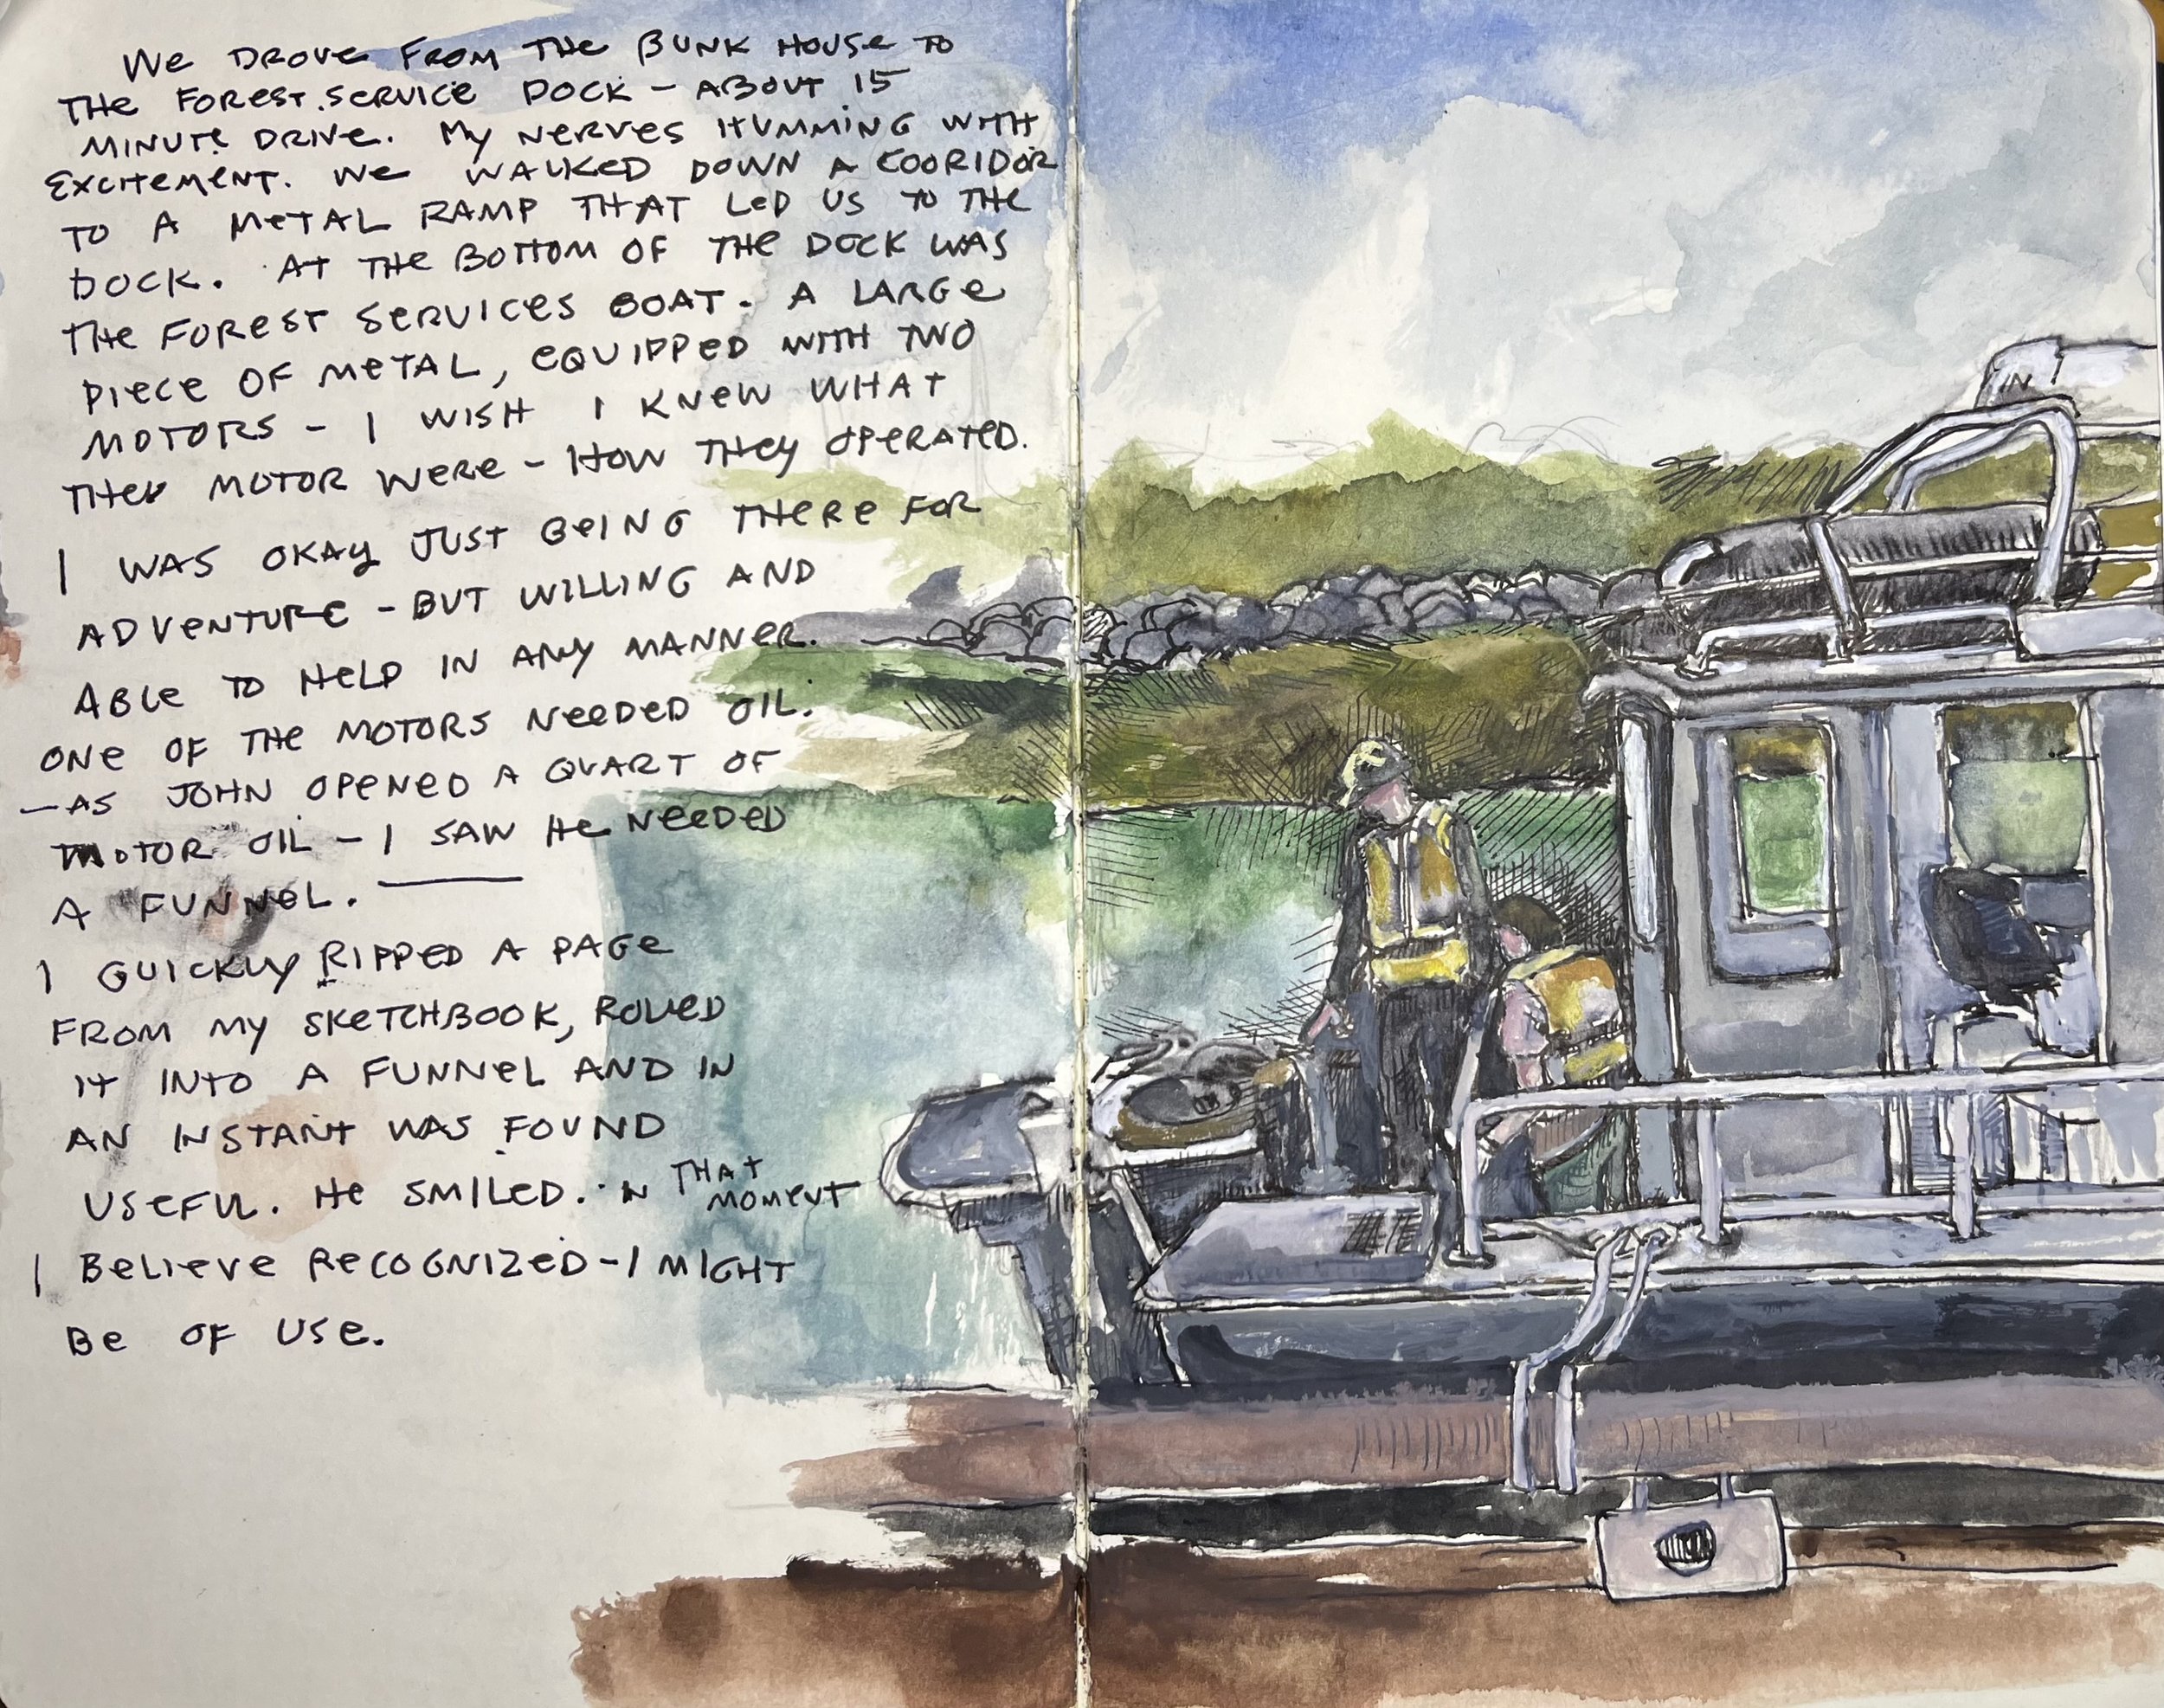 We DROVE FROM THE BUNK HOUSE TO
THE FOREST SERVICE DOCK – ABOUT 15
MINUTE DRIVE. My NERVES HUMMING WITH
EXCITEMENT. We WALKED DOWN A COORIDOR
TO A METAL RAMP THAT LED US TO THE
DOCK. AT THE BOTTOM OF THE DOCK WAS
THE FOREST SERVICES BOAT. A LARGE
PIECE OF METAL, EQUIPPED WITH TWO
MOTORS – I WISH I KNEW WHAT
MOTOR WERE – HOW THEY OPERATED.
I WAS OKAY JUST BEING THERE FOR
ADVENTURE – BUT WILLING AND
ABLE TO HELP IN ANY MANNER.
ONE OF THE MOTORS NEEDED OIL.
– AS JOHN OPENED A QUART OF
MOTOR OIL – I SAW HE NEEDED
A FUNNEL.
I QUICKLY RIPPED A PAGE
FROM MY SKETCHBOOK, ROLLED
IT INTO A FUNNEL AND IN
AN INSTANT WAS FOUND
USEFUL. HE SMILED. IN THAT
MOMENT
I BELIEVE RECOGNIZED – I MIGHT
BE OF USE.